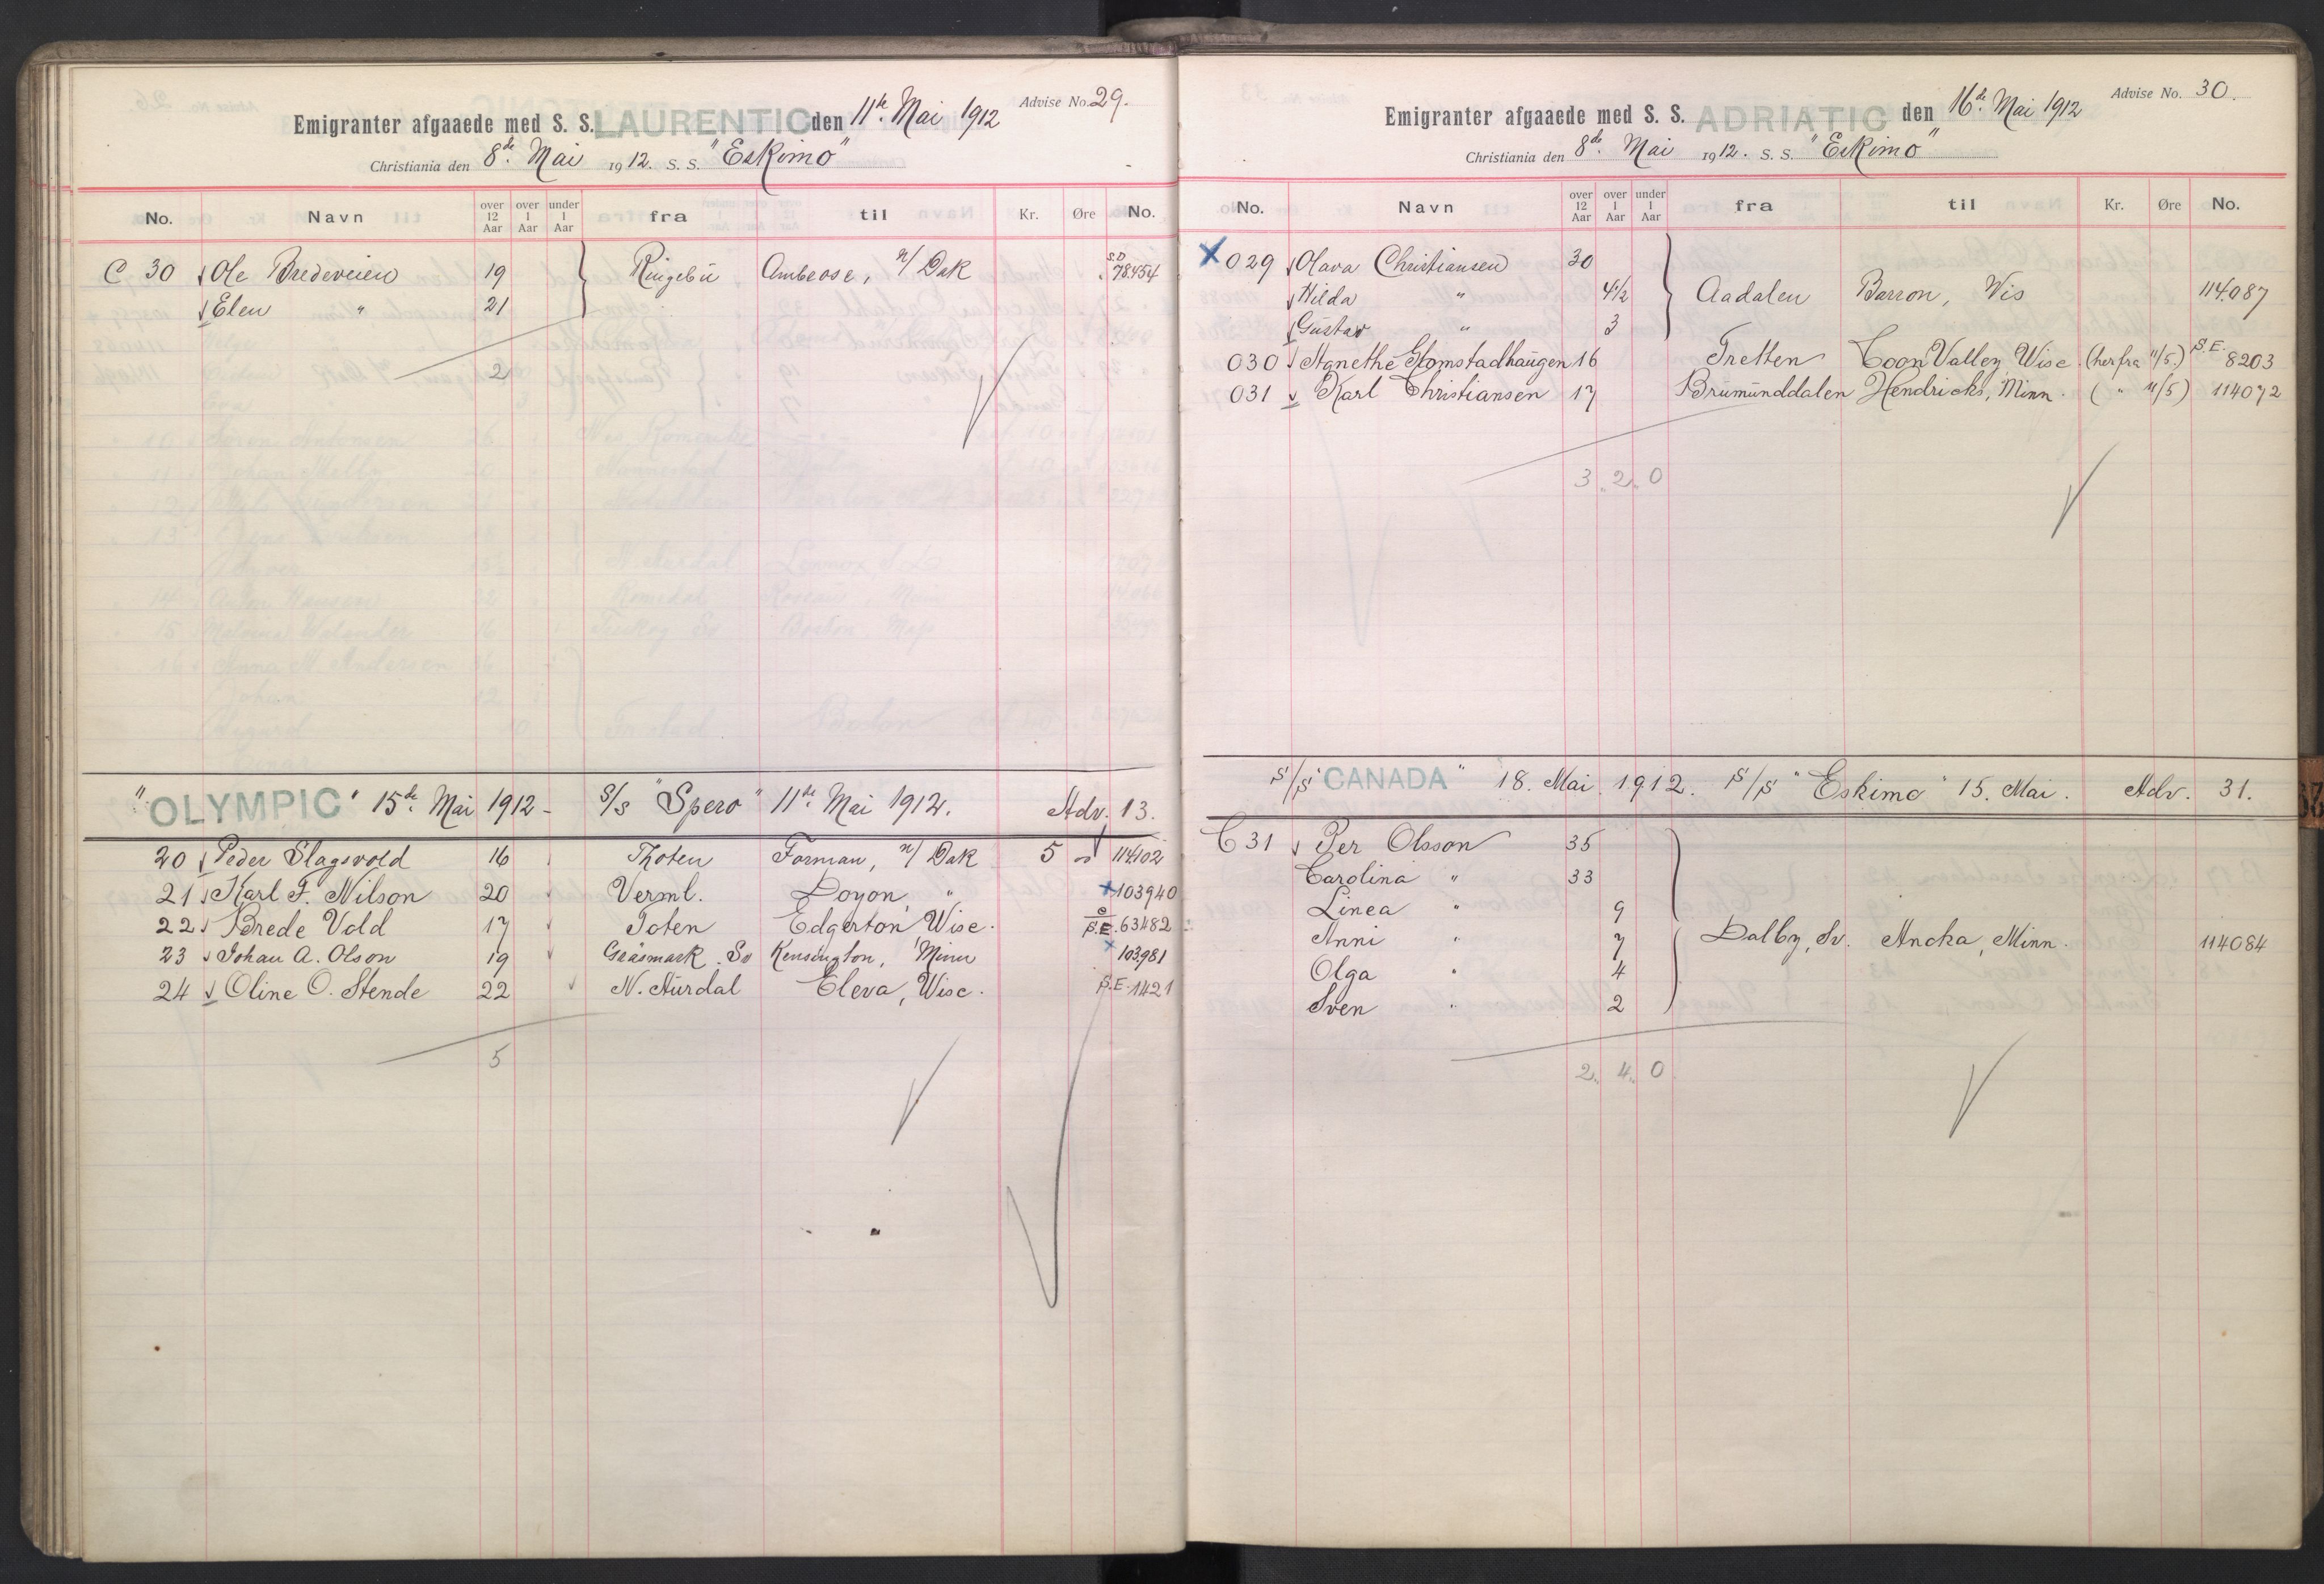 Emigranter afgaaede med S. S. LAURENTIC den 11te Mai 1912 Advise No. 29.
Christiania den 8de Mai 1912. S. S. "Eskimo"
No. Navn over 12 Aar over 1 Aar under 1 Aar fra til Kr. Øre No.
C 30 Ole Bredeveien 19 Ringebu Ambrose, N/Dak S.D 78454
Elen " 21
2
"OLYMPIC" 15de Mai 1912 - S/S "Spero" 11te Mai 1912. Adv. 13.
20 Peder Slagsvold 16 Thoten Forman, N/Dak 5 114102
21 Karl F. Nilson 20 Verml. Doyon, " x 103940
22 Brede Vold 17 Toten Edgerton Wisc. S.E. 63482
23 Johan A. Olson 19 Gräsmark. Sv Kensington, Minn x 103981
24 Oline O. Stende 22 N. Aurdal Eleva, Wisc. S.E. 1421
5
Emigranter afgaaede med S. S. ADRIATIC den 16de Mai 1912 Advise No. 30.
Christiania den 8de Mai 1912. S. S. "Eskimo"
No. Navn over 12 Aar over 1 Aar under 1 Aar fra til Kr. Øre No.
x 029 Olava Christiansen 30
Hilda " 4½ Aadalen Barron, Wis 114087
Gustav " 3
030 Agnethe Glomstadhaugen 16 Tretten Coon Valley Wisc. (herfra 11/5) S.E. 8203
031 Karl Christiansen 17 Brumunddalen Hendricks, Minn. ( " 11/5) 114072
3. 2. 0
S/S "CANADA" 18. Mai 1912. S/S "Eskimo" 15. Mai. Adv. 31.
C 31 Per Olsson 35
Carolina " 33
Linea " 9
Anni " 7 Dalby, Sv. Anoka, Minn. 114084
Olga " 4
Sven " 2
2. 4. 0